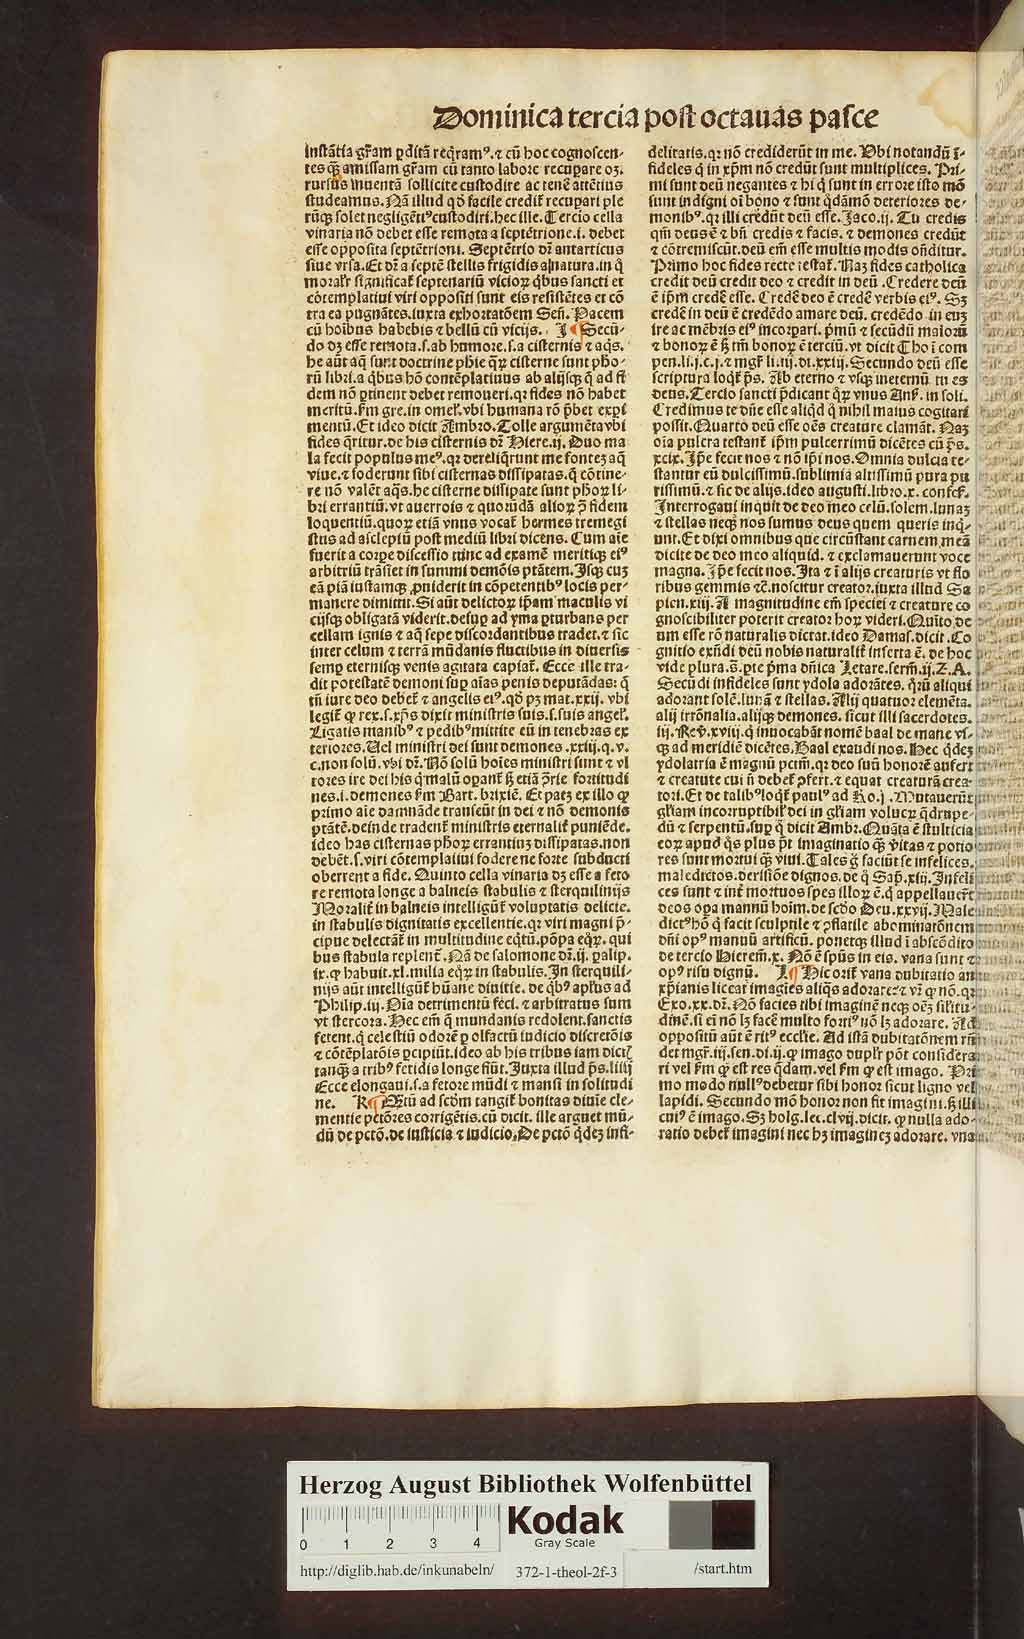 Dominica tercia post octauas pasce
instātia gr̄am ꝑditā req̄ramꝰ. ⁊ cū hoc cognoscen-
tes ꝙ̄ amissam gr̄am cū tanto labore recupare oꝫ.
rursus inuentā sollicite custodire ac tenē attētius
studeamus. Nā illud qḋ facile credit̄ recupari ple
rūqꝫ solet negligētiꝰ custodiri. hec ille. Tercio cella
vinaria nō debet esse remota a septētrione. i. debet
esse opposita septētrioni. Septētrio dr̄ antarticus
siue vrsa. Et dr̄ a septē stellis frigidis a natura. in q̄
moralr̄ significat̄ septenariū vicioꝝ qḃus sancti et
cōtemplatiui viri oppositi sunt eis resistētes et cō
tra ea pugnātes. iuxta exhortatōem Sen̄. Pacem
cū hoībus habebis ⁊ bellū cū vicijs. I ¶ Secū-
do dꝫ esse remota. s. ab humore. s. a cisternis ⁊ aq̄s.
he aūt aq̄ sunt doctrine ph̄ie q̄ꝝ cisterne sunt ph̄o-
rū libri. a qḃus hō contēplatiuus ab alijsqꝫ q̄ ad fi
dem nō ꝑtinent debet remoueri. qꝛ fides nō habet
meritū. ẜm gre. in omel̄. vbi humana rō p̄bet expi
mentū. Et ideo dicit Ambro. Tolle argumēta vbi
fides q̄ritur. de his cisternis dr̄ Hiere. ij. Duo ma
la fecit populus meꝰ. qꝛ dereliq̄runt me fontez aq̄
viue. ⁊ foderunt sibi cisternas dissipatas. q̄ cōtine-
re nō valēt aq̄s. he cisterne dissipate sunt ph̄oꝝ li-
bri errantiū. vt auerrois ⁊ quorūdā alioꝝ ꝯ̄ fidem
loquentiū. quoꝝ etiā vnus vocat̄ hermes tremegi
stus ad asclepiū post mediū libri dicens. Cum aīe
fuerit a corpe discessio tunc ad examē meritiqꝫ eiꝰ
arbitriū trāsiet in summi demōis ptātem. Isqꝫ cuz
eā piā iustamqꝫ ꝓuiderit in cōpetentibꝰ locis per-
manere dimittit. Si aūt delictoꝝ ip̄am maculis vi
cijsqꝫ obligatā viderit. desuꝑ ad yma ꝓturbans per
cellam ignis ⁊ aq̄ sepe discordantibus tradet. ⁊ sic
inter celum ⁊ terrā mūdanis fluctibus in diuersis
semꝑ eternisqꝫ venis agitata capiat̄. Ecce ille tra-
dit potestatē demoni suꝑ aīas penis deputādas: q̄
tn̄ iure deo debet̄ ⁊ angelis eiꝰ. qḋ pꝫ mat. xxij. vbi
legit̄ ꝙ rex. s. xp̄s dixit ministris suis. s. suis angel̄.
Ligatis manibꝰ ⁊ pedibꝰ mittite eū in tenebras ex
teriores. Uel ministri dei sunt demones. xxiij. q. v.
c. non solū. vbi dr̄. Nō solū hoīes ministri sunt ⁊ vl
tores ire dei his q̄ malū opant̄ ꝫ etiā ꝯ̄rie fortitudi
nes. i. demones ẜm Bart. brixiē. Et patꝫ ex illo ꝙ
primo aīe damnāde transeūt in dei ⁊ nō demonis
ptātē. deinde tradent̄ ministris eternalit̄ puniēde.
ideo has cisternas ph̄oꝝ errantiuꝫ dissipatas. non
debēt. s. viri cōtemplatiui fodere ne forte subducti
oberrent a fide. Quinto cella vinaria dꝫ esse a feto
re remota longe a balneis stabulis ⁊ sterquilinijs
Moralit̄ in balneis intelligūt̄ voluptatis delicie.
in stabulis dignitatis excellentie. qꝛ viri magni p̄-
cipue delectāt̄ in multitudine eq̄tū. pōpa eq̄ꝝ. qui
bus stabula replent̄. Nā de salomone dr̄. ij. ꝑalip.
ix. ꝙ habuit. xl. milia eq̄ꝝ in stabulis. In sterquili-
nijs aūt intelligūt̄ hūane diuitie. de qḃꝰ apl̄us ad
Philip. iij. Oīa detrimentū feci. ⁊ arbitratus sum
vt stercora. Hec em̄ q̄ mundanis redolent. sanctis
fetent. q̄ celestiū odorē ꝑ olfactū iudicio discretōis
⁊ cōtēplatōis ꝑcipiūt. ideo ab his tribus iam dict̄
tanqꝫ a tribꝰ fetidis longe fiūt. Juxta illud ps. liiij
Ecce elongaui. s. a fetore mūdi ⁊ mansi in solitudi
ne. K ¶ Etū ad sc̄dm tangit̄ bonitas diuīe cle-
mentie pctōres corrigētis. cū dicit. ille arguet mū-
dū de pctō. de iusticia ⁊ iudicio. De pctō q̄dez infi-
delitatis. qꝛ nō crediderūt in me. Ubi notandū ī-
fideles q̄ in xp̄m nō credūt sunt multiplices. Pri-
mi sunt deū negantes ⁊ hi q̄ sunt in errore isto mō
sunt indigni oī bono ⁊ sunt q̄dāmō deteriores de-
monibꝰ. qꝛ illi credūt deū esse. Jaco. ij. Tu credis
qm̄ deus ē ⁊ bn̄ credis ⁊ facis. ⁊ demones credūt
⁊ cōtremiscūt. deū em̄ esse multis modis on̄ditur.
Primo hoc fides recte testat̄. Naꝫ fides catholica
credit deū credit deo ⁊ credit in deū. Credere deū
ē ip̄m credē esse. Credē deo ē credē verbis eiꝰ. Sꝫ
credē in deū ē credēdo amare deū. credēdo in euꝫ
ire ac mēbris eiꝰ incorpari. pͥmū ⁊ secūdū maloꝝ
⁊ bonoꝝ ē ꝫ tm̄ bonoꝝ ē terciū. vt dicit Tho ī com
pen. li. j. c. j. ⁊ mgr̄ li. iij. di. xxiij. Secundo deū esse
scriptura loqt̄ ps. Ab eterno ⁊ vsqꝫ ineternū tu es
deus. Tercio sancti p̄dicant qꝝ vnus Ans̄. in soli.
Credimus te dn̄e esse aliqd q̄ nihil maius cogitari
possit. Quarto deū esse oēs creature clamāt. Naꝫ
oīa pulcra testant̄ ip̄m pulcerrimū dicētes cū ps.
xcix. Ip̄e fecit nos ⁊ nō ip̄i nos. Omnia dulcia te-
stantur eū dulcissimū. sublimia altissimū pura pu
rissimū. ⁊ sic de alijs. ideo augusti. libro. x. confes̄.
Interrogaui inquit de deo meo celū. solem. lunaꝫ
⁊ stellas neqꝫ nos sumus deus quem queris inq̄-
unt. Et dixi omnibus que circūstant carnem meā
dicite de deo meo aliquid. ⁊ exclamauerunt voce
magna. Ip̄e fecit nos. Ita ⁊ ī alijs creaturis vt flo
ribus gemmis ⁊c̄. noscitur creator. iuxta illud Sa
pien. xiij. A magnitudine em̄ speciei ⁊ creature co
gnoscibiliter poterit creator hoꝝ videri. Quīto de
um esse rō naturalis dictat. ideo Damas. dicit. Co
gnitio exn̄di deū nobis naturalit̄ inserta ē. de hoc
vide plura. s̄. pte pͥma dn̄ica Letare. serm̄. ij. Z. A.
Secūdi infideles sunt ydola adorātes. qrū aliqui
adorant solē. lunā ⁊ stellas. Alij quatuor elemēta.
alij irrōnalia. alijqꝫ demones. sicut illi sacerdotes.
iij. Reꝝ. xviij. q̄ inuocabāt nomē baal de mane vs-
qꝫ ad meridiē dicētes. Baal exaudi nos. Hec q̄dez
ydolatria ē magnū pctm̄. qꝛ deo suū honorē aufert
⁊ creature cui n̄ debet̄ ꝓfert. ⁊ equat creaturā crea-
tori. Et de talibꝰ loqt̄ paulꝰ ad Ro. j. Mutauerūt
gl̄iam incorruptibil̄ dei in gl̄iam volucꝝ q̄drupe-
dū ⁊ serpentū. suꝑ q̄ dicit Ambr. Quāta ē stulticia
eoꝝ apud q̄s plus p̄t imaginatio qꝫ v̄itas ⁊ potio
res sunt mortui qꝫ viui. Tales ḡ faciūt se infelices.
maledictos. derisiōe dignos. de q̄ Sap̄. xiij. Infeli
ces sunt ⁊ int̄ mortuos spes illoꝝ ē. q̄ appellauer̄t
deos oꝑa mannū hoīm. de sc̄do Deu. xxvij. Male
dictꝰ hō q̄ facit sculptile ⁊ ꝯflatile abominatōnem
dn̄i opꝰ manuū artificū. ponetqꝫ illud ī abscōdito
de tercio Hierem̄. x. Nō ē spūs in eis. vana sunt ⁊
opꝰ risu dignū. L ¶ Hic orit̄ vana dubitatio an
xp̄ianis liceat imagīes aliq̄s adorare. ⁊ vr̄ ꝙ nō. qꝛ
Exo. xx. dr̄. Nō facies tibi imaginē neqꝫ oēꝫ sil̄itu-
dinē. si eī nō lꝫ facē multo fortiꝰ nō lꝫ adorare. Ad
oppositū aūt ē ritꝰ eccl̄ie. Ad istā dubitatōnem rn̄
det mgr̄. iij. sen. di. ij. ꝙ imago duplr̄ pōt considera
ri vel ẜm ꝙ est res q̄dam. vel ẜm ꝙ est imago. Pri
mo modo nullꝰ debetur sibi honor sicut ligno vel
lapidi. Secundo mō honor non fit imagini. ꝫ illi
cuiꝰ ē imago. Sꝫ holg. lec. clvij. dicit. ꝙ nulla ado-
ratio debet̄ imagini nec hꝫ imaginē adorare. vna
Herzog August Bibliothek Wolfenbüttel
0 1 2 3 4
Kodak
Gray Scale
http://diglib.hab.de/inkunabeln/ 372-1-theol-2f-3 /start.htm